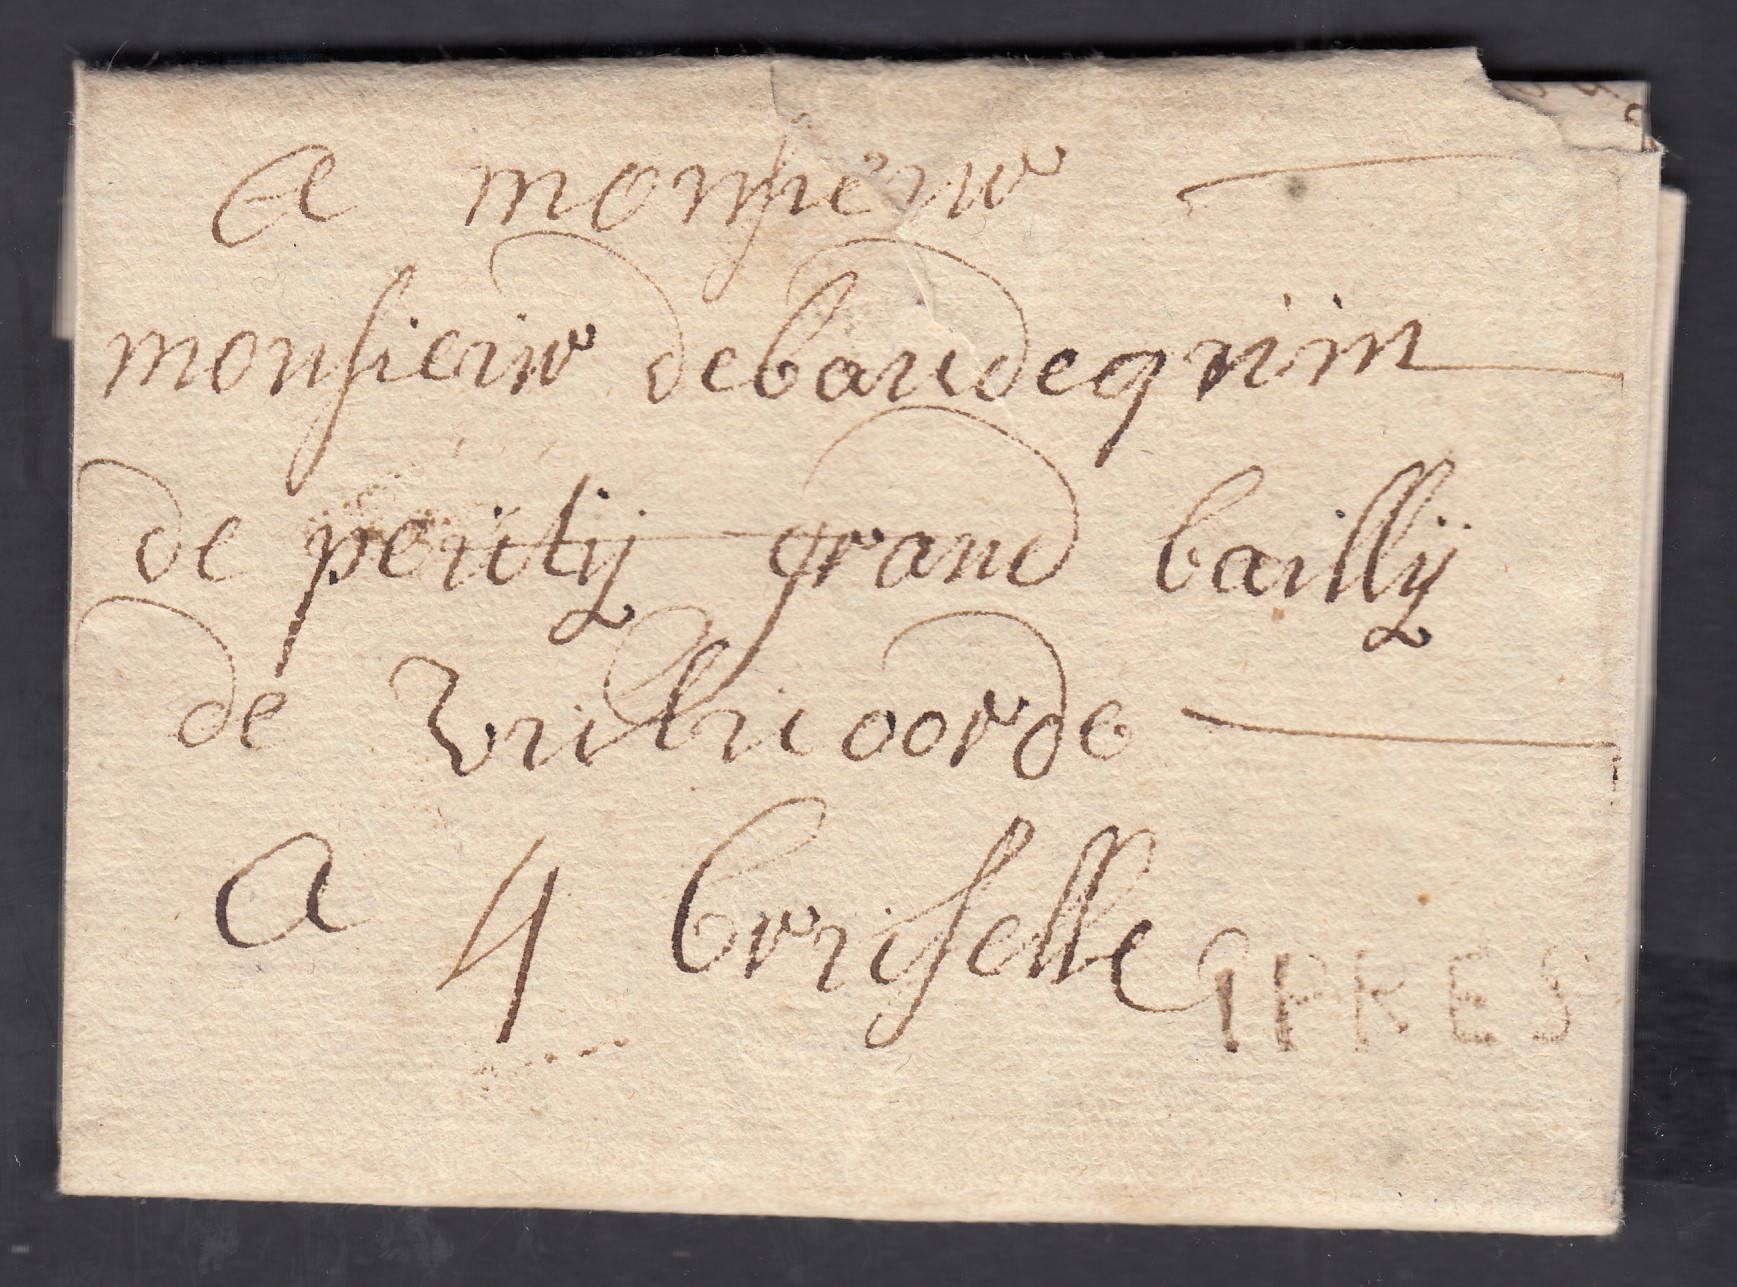 A monsieur
monsieur debaudequin
de peutij grand baillij
de vilvoorde
A 4 bruselle IPRES